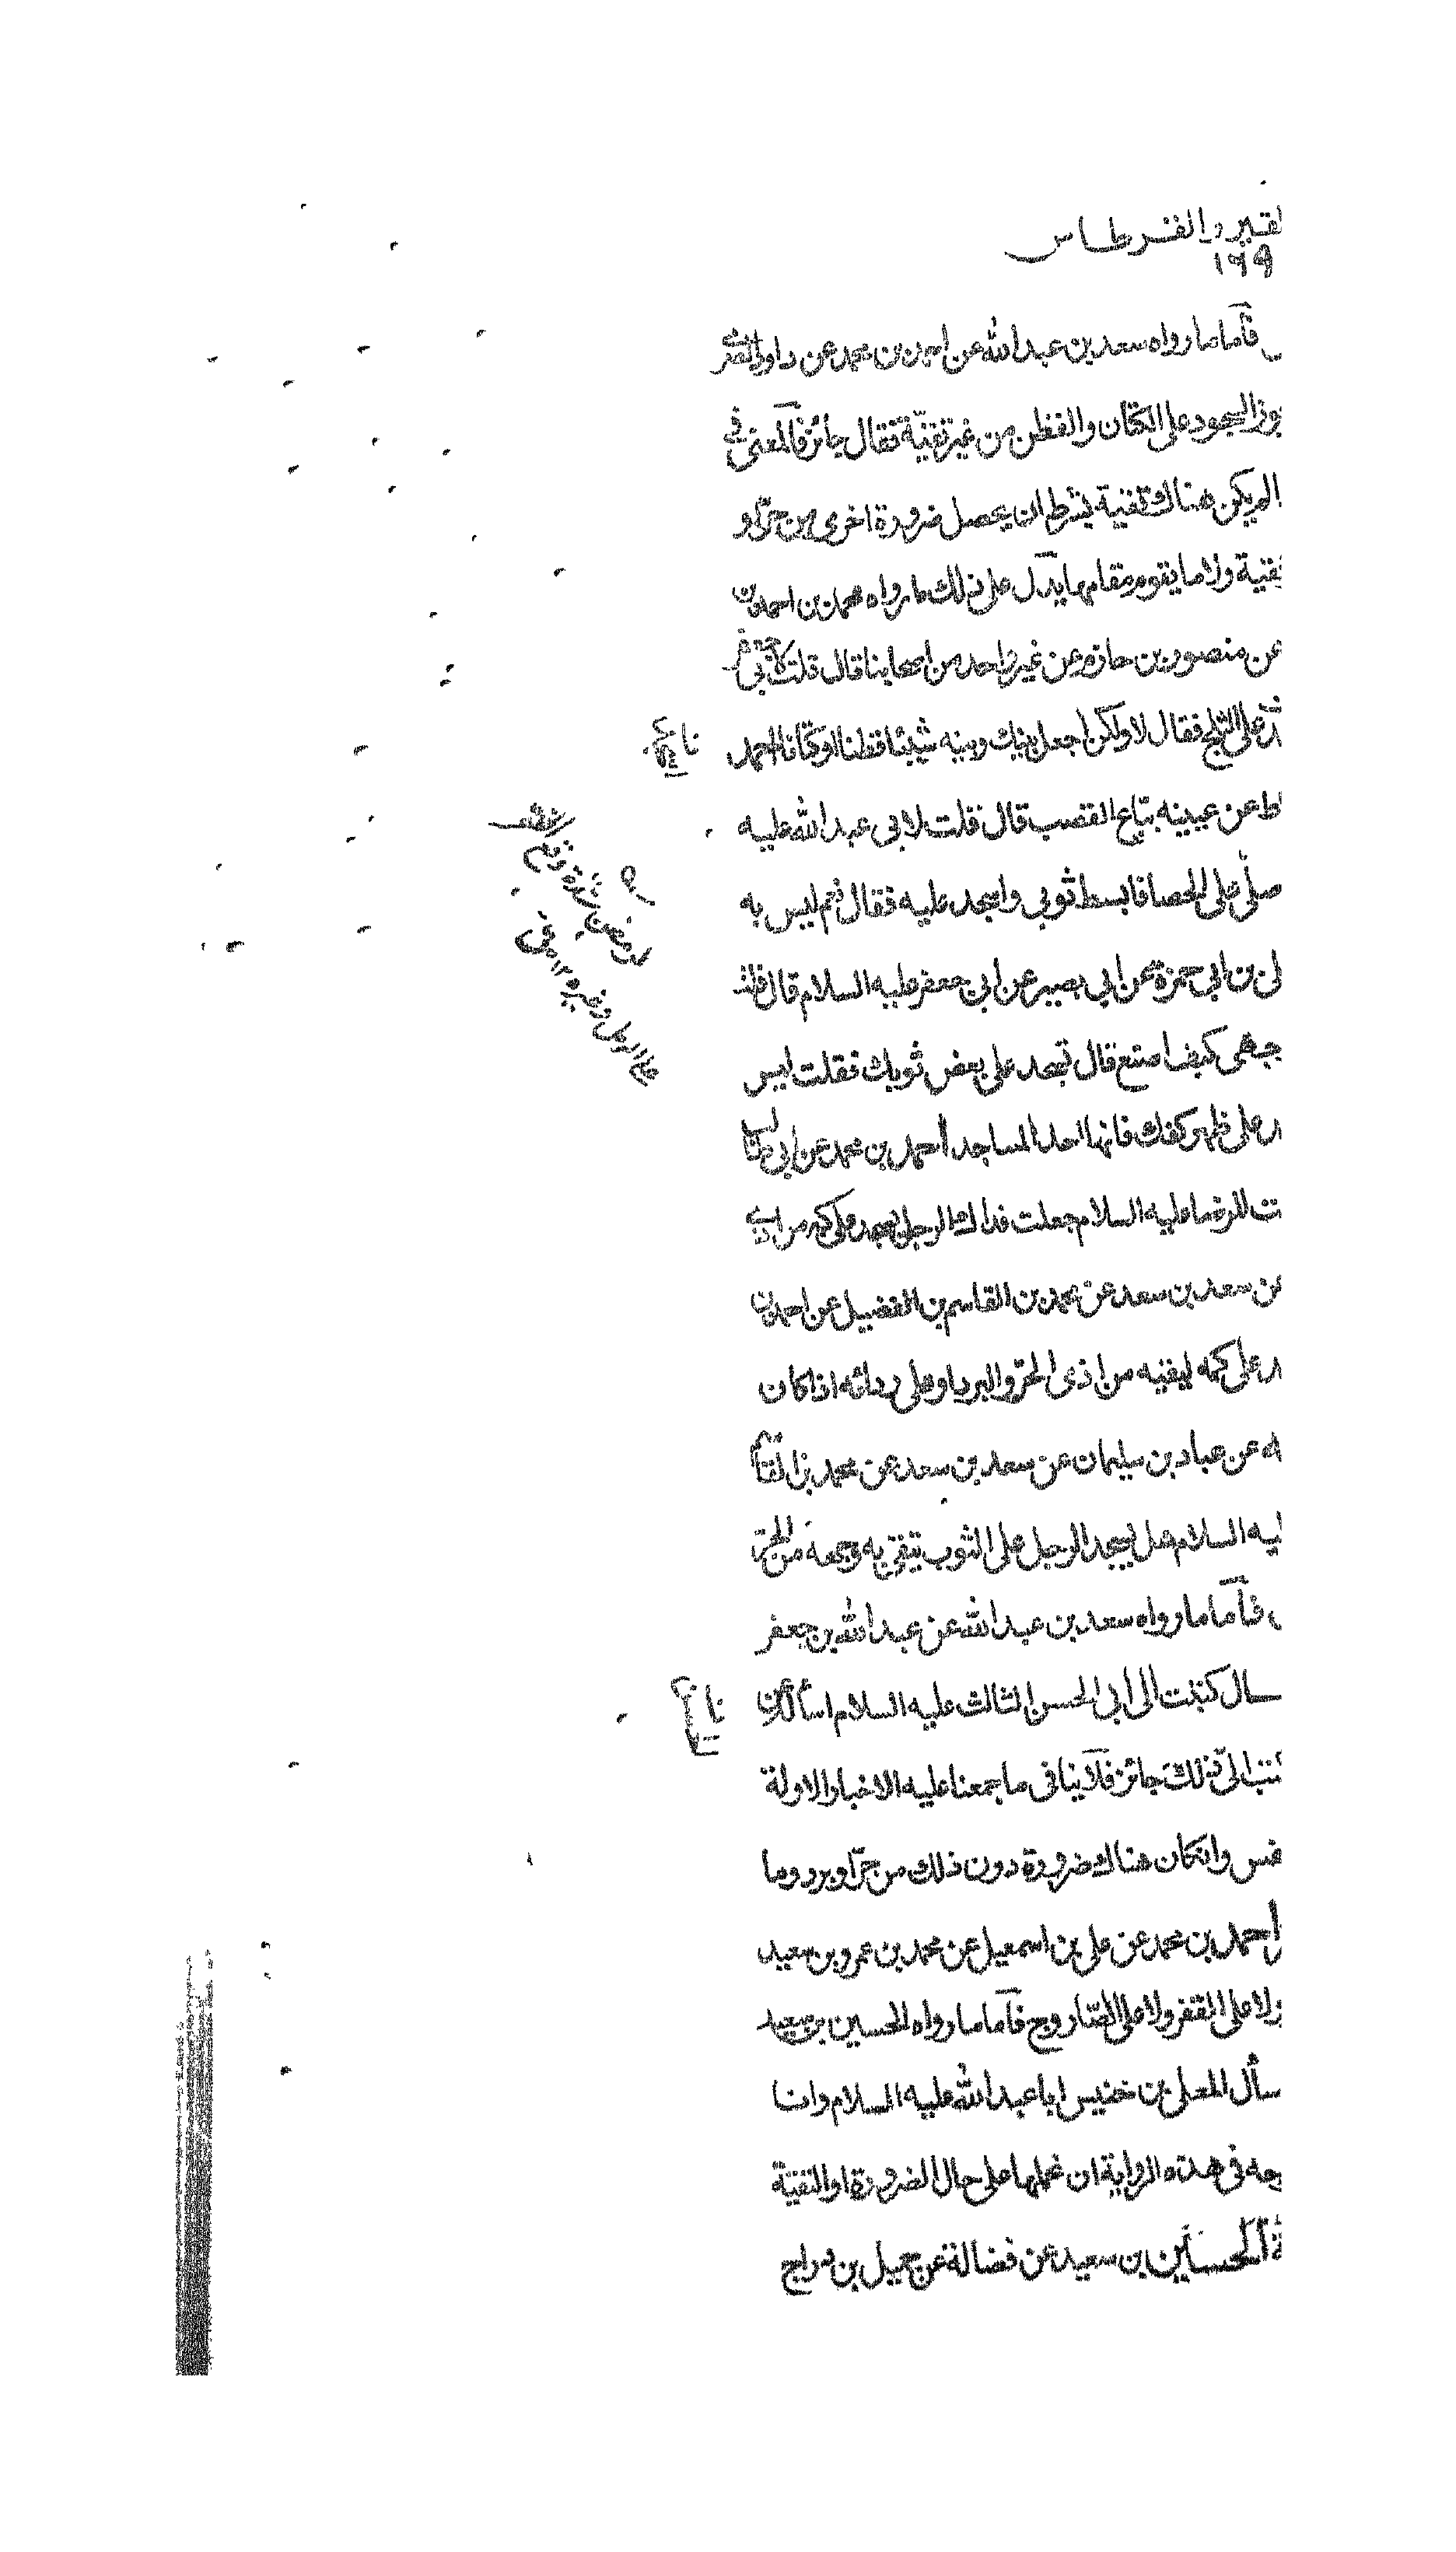 لقير والقرطاس
١٦٩
فأما ما رواه سعد بن عبد الله عن احمد بن محمد عن داود الصرمي
يجوز السجود على الكتان والقطن من غير تقيّة فقال جائز فالمعنى في
لم يكن هناك تقية بشرط ان يحصل ضرورة اخرى من حرّ او
تقية ولا ما يقوم مقامها يدل على ذلك ما رواه محمد بن احمد بن
عن منصور بن حازم عن غير واحد من اصحابنا قال قلت لابي
على الثلج فقال لا ولكن اجعل بينك وبينه شيئا قطنا او كتانا احمد
عن عيينه بيّاع القصب قال قلت لابي عبد الله عليه
صلّي على الحصا فابسط ثوبي واسجد عليه فقال نعم ليس به
لي بن ابي حمزة عن ابي بصير عن ابي جعفر عليه السلام قال قلت
وجهي كيف اصنع قال تسجد على بعض ثوبك فقلت ليس
على ظهر كفك فانها احد المساجد احمد بن محمد عن ابي
ت للرضا عليه السلام جعلت فداك الرجل يسجد على كمه من اذى
عن سعد بن سعد عن محمد بن القاسم بن الفضيل عن احمد بن
على كمه ليقيه من اذى الحرّ والبرد او على ردائه اذا كان
عن عباد بن سليمان عن سعد بن سعد عن محمد بن القاسم
ليه السلام هل يسجد الرجل على الثوب يتقي به وجهه من الحرّ
فأما ما رواه سعد بن عبد الله عن عبد الله بن جعفر
سال كتبت الى ابي الحسن الثالث عليه السلام اسأله عن
كتب الىّ ذلك جائز فلا ينافى ما جمعنا عليه الاخبار الاولة
نفس وان كان هناك ضرورة دون ذلك من حرّ او برد وما
احمد بن محمد عن علي بن اسمعيل عن محمد بن عمرو بن سعيد
ولا على القفر ولا على الصّاروج فأما ما رواه الحسين بن سعيد
سأل المعلى بن خنيس ابا عبد الله عليه السلام وانا
وجه في هذه الرواية ان نحملها على حال الضرورة او التقيّة
الحسين بن سعيد عن فضالة عن جميل بن دراج